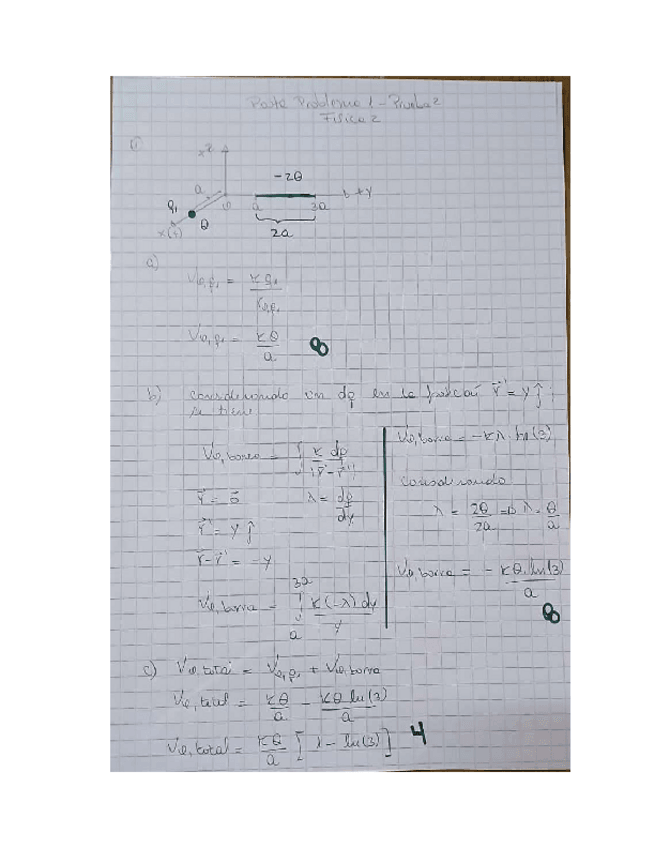 Parte Problema 1 - Prueba 2
Física 2
z
-2Q
a
q₁
Q
a
3a
+y
2a
x(+)
a)
V₀,q₁ = K q₁ / r₀,q₁
V₀,q₁ = KQ / a
8
b) considerando un dq en la posición r⃗' = y ĵ ;
se tiene
V₀,barra = ∫ K dq / |r⃗ - r⃗'|
r⃗ = 0⃗
λ = dq / dy
r⃗' = y ĵ
r⃗ - r⃗' = -y
V₀,barra = ∫ₐ³ᵃ K(-λ) dy / y
V₀,barra = -Kλ · ln(3)
considerando
λ = 2Q / 2a => λ = Q / a
V₀,barra = - KQ ln(3) / a
8
c) V₀,total = V₀,q₁ + V₀,barra
V₀,total = KQ / a - KQ ln(3) / a
V₀,total = KQ / a [ 1 - ln(3) ]
4